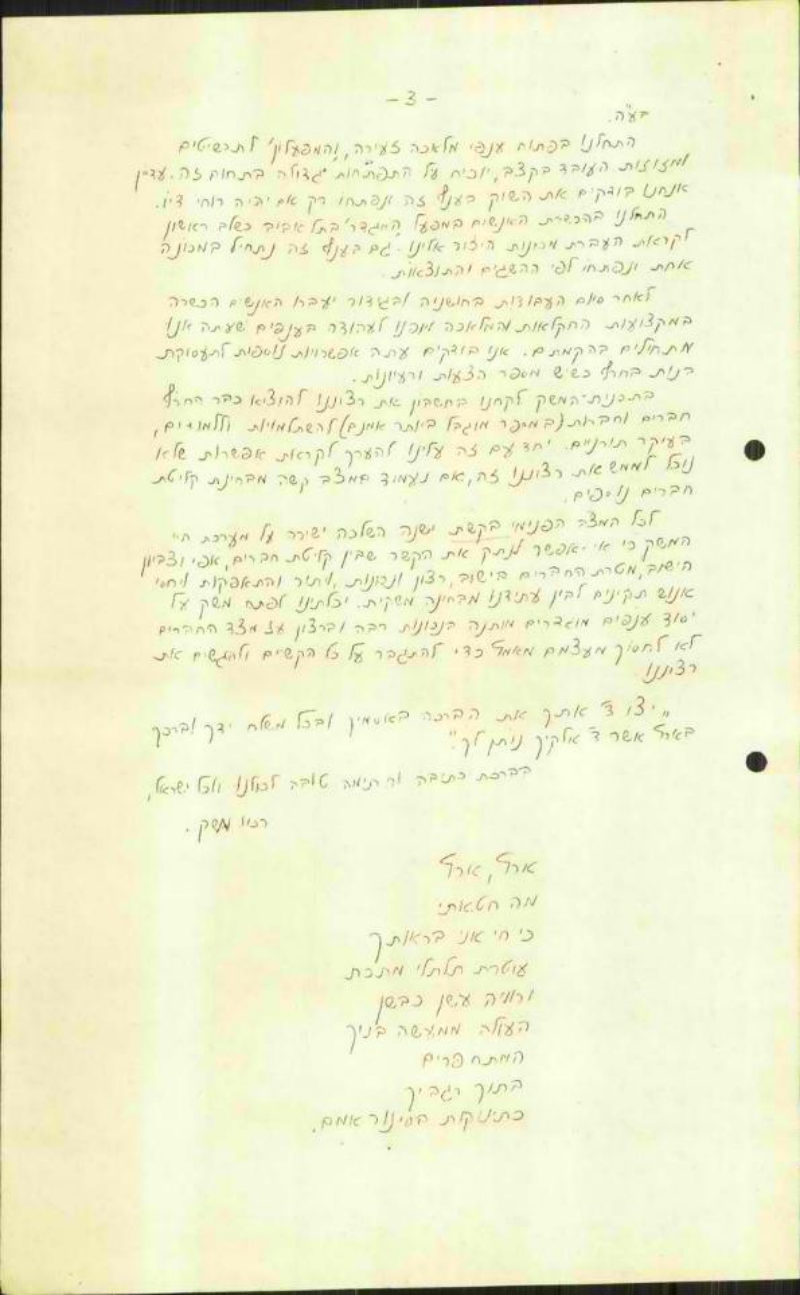 - 3 -
בע"ה.
התחלנו בפתוח ענפי מלאכה זעירה, "המפעלון" לתכשיטים
ומזוזות העובד בקצב, יוכיח על התפתחות גדולה בתחום זה. עדיין
אנחנו בודקים את השוק בענף זה ונפתחו רק אם יהיה רוחי דיו.
התחלנו בהכשרת האנשים במפעל בתל אביב כשלב ראשון
לקראת העברת מכונות היצור אלינו. גם בענף זה נתחיל במכונה
אחת ונפתחו לפי ההשגים והתוצאות.
לאחר סיום העבודות בחושניה ובגידור יעברו האנשים הכשרה
במקצועות החקלאות והמלאכה ויוכנו לעבודה בענפים שעתה אנו
מתחילים בהקמתם. אנו בודקים עתה אפשרויות נוספות לתעסוקת
בנות בחורף כשיש מספר הצעות ורעיונות.
בתכנית המשק לקחנו בחשבון את רצוננו להוציא כבר החרף
חברים וחברות (במספר מוגבל ביותר אמנם) להשתלמויות וללמודים,
בעיקר תורניים. יחד עם זה עלינו להערך לקראת אפשרות שלא
נוכל לממש את רצוננו זה, אם נעמוד במצב קשה מבחינת קליטת
חברים נוספים.
לכל המצב הפנימי בקשת ישנה השלכה ישירה על מערכת חיי
המשק כי אי-אפשר לנתק את הקשר שבין קליטת חברים, אפי וצביון
הישוב, מטרת החברים בישוב, רצון ונכונות, ויתור והתאפקות ויחסי
אנוש תקינים לבין עתידנו מבחינה משקית. יכלתינו לפתח משק על
יסוד ענפים מוגדרים מותנה בנכונות רבה וברצון עז מצד החברים
לא לחסוך מעצמם מאמץ כדי להתגבר על כל הקשיים ולהגשים את
רצוננו
"יצו ד' אתך את הברכה באסמיך ובכל משלח ידך וברכך
בארץ אשר ד' אלקיך נותן לך."
בברכת כתיבה וחתימה טובה לכולנו ולכל ישראל,
רכז משק.
ארץ, ארץ
מה חטאתי
כי חי אני בראותך
עוטרת תלתלי מתכת
ורוויה עשן כבשן
העולה ממעשה בניך
המתחפרים
בתוך רגביך
כתינוקות בסינור אמם.